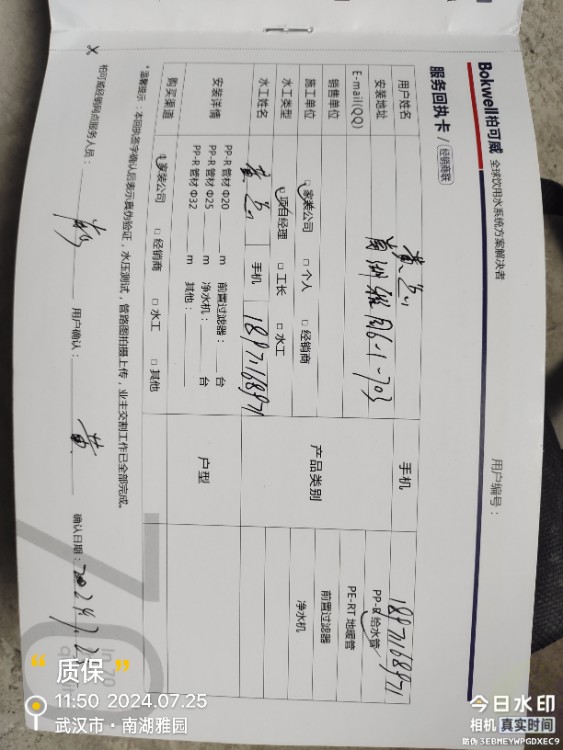 Bokwell柏可威 全球饮用水系统方案解决者
服务回执卡 / 经销商联
用户编号：
用户姓名 黄 手机 18971168971
安装地址 南湖雅园6-1-703
E-mail(QQ)
产品类别
PP-R 给水管
PE-RT 地暖管
前置过滤器
净水机
销售单位
施工单位 家装公司 个人 经销商
水工类型 项目经理 工长 水工
水工姓名 黄 手机 18971168971
安装详情
PP-R 管材 Φ20 m 前置过滤器： 台
PP-R 管材 Φ25 m 净水机： 台
PP-R 管材 Φ32 m 其他：
户型
购买渠道 家装公司 经销商 水工 其他
*温馨提示：本回执签字确认后表示真伪验证，水压测试，管路图拍摄上传，业主交割工作已全部完成。
柏可威经销网点服务人员： 用户确认： 黄 确认日期： 2024.7.25
“质保”
11:50 2024.07.25
武汉市·南湖雅园
今日水印
相机 真实时间
防伪 3EBMEYWPGDXEC9